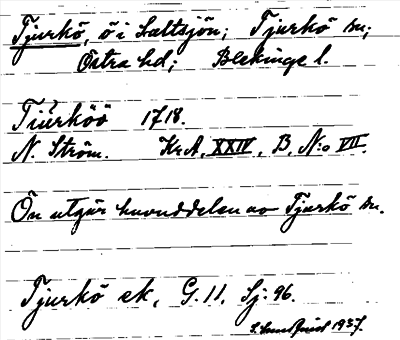 Tjurkö, ö i Saltsjön; Tjurkö sn;
Östra hd; Blekinge l.
Tiúrköö 1718.
N. Ström. Kr.A. XXIV, B, N:o VII.
Ön utgör huvuddelen av Tjurkö sn.
Tjurkö ek, G. 11, Sj: 96.
1937.